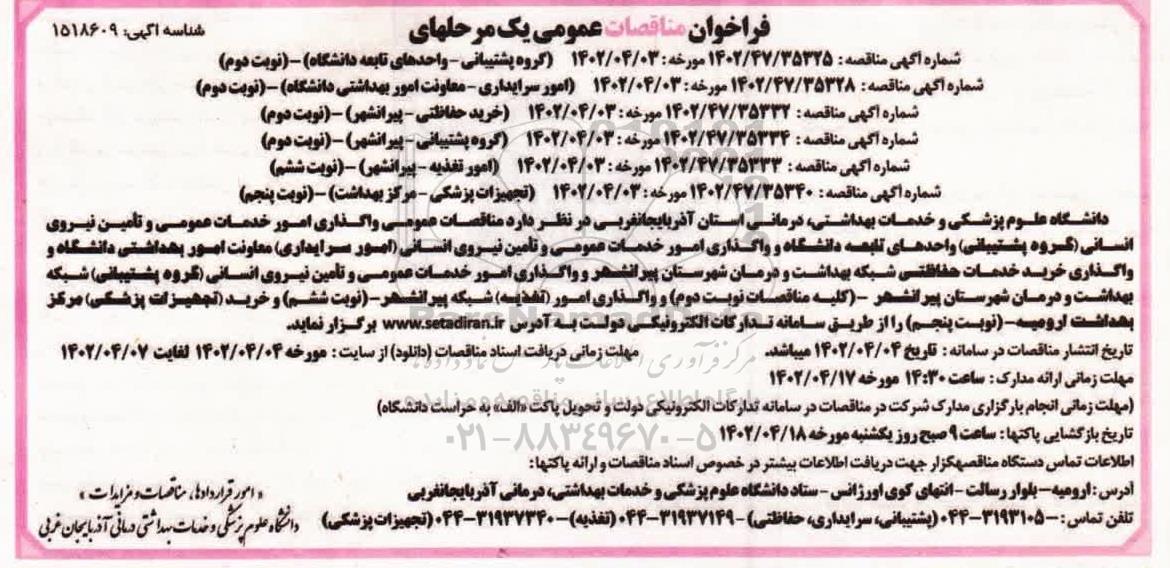 فراخوان مناقصات عمومی یک مرحلهای
شناسه آگهی: ۱۵۱۸۶۰۹
شماره آگهی مناقصه : ۱۴۰۲/۴۷/۳۵۳۲۵ مورخه : ۱۴۰۲/۰۴/۰۳ (گروه پشتیبانی - واحدهای تابعه دانشگاه) -(نوبت دوم)
شماره آگهی مناقصه : ۱۴۰۲/۴۷/۳۵۳۲۸ مورخه : ۱۴۰۲/۰۴/۰۳ (امور سرایداری - معاونت امور بهداشتی دانشگاه) -(نوبت دوم)
شماره آگهی مناقصه : ۱۴۰۲/۴۷/۳۵۳۳۲ مورخه : ۱۴۰۲/۰۴/۰۳ (خرید حفاظتی - پیرانشهر) -(نوبت دوم)
شماره آگهی مناقصه : ۱۴۰۲/۴۷/۳۵۳۳۴ مورخه : ۱۴۰۲/۰۴/۰۳ (گروه پشتیبانی - پیرانشهر) -(نوبت دوم)
شماره آگهی مناقصه : ۱۴۰۲/۴۷/۳۵۳۳۳ مورخه : ۱۴۰۲/۰۴/۰۳ (امور تغذیه - پیرانشهر) -(نوبت ششم)
شماره آگهی مناقصه : ۱۴۰۲/۴۷/۳۵۳۴۰ مورخه : ۱۴۰۲/۰۴/۰۳ (تجهیزات پزشکی - مرکز بهداشت) -(نوبت پنجم)
دانشگاه علوم پزشکی و خدمات بهداشتی، درمانی استان آذربایجانغربی در نظر دارد مناقصات عمومی واگذاری امور خدمات عمومی و تأمین نیروی
انسانی (گروه پشتیبانی) واحدهای تابعه دانشگاه و واگذاری امور خدمات عمومی و تأمین نیروی انسانی (امور سرایداری) معاونت امور بهداشتی دانشگاه و
واگذاری خرید خدمات حفاظتی شبکه بهداشت و درمان شهرستان پیرانشهر و واگذاری امور خدمات عمومی و تأمین نیروی انسانی (گروه پشتیبانی) شبکه
بهداشت و درمان شهرستان پیرانشهر -(کلیه مناقصات نوبت دوم) و واگذاری امور (تغذیه) شبکه پیرانشهر-(نوبت ششم) و خرید (تجهیزات پزشکی) مرکز
بهداشت ارومیه-(نوبت پنجم) را از طریق سامانه تدارکات الکترونیکی دولت به آدرس www.setadiran.ir برگزار نماید.
تاریخ انتشار مناقصات در سامانه : تاریخ ۱۴۰۲/۰۴/۰۴ میباشد. مهلت زمانی دریافت اسناد مناقصات (دانلود) از سایت : مورخه ۱۴۰۲/۰۴/۰۴ لغایت ۱۴۰۲/۰۴/۰۷
مهلت زمانی ارائه مدارک : ساعت ۱۴:۳۰ مورخه ۱۴۰۲/۰۴/۱۷
(مهلت زمانی انجام بارگزاری مدارک شرکت در مناقصات در سامانه تدارکات الکترونیکی دولت و تحویل پاکت «الف» به حراست دانشگاه)
تاریخ بازگشایی پاکتها : ساعت ۹ صبح روز یکشنبه مورخه ۱۴۰۲/۰۴/۱۸
اطلاعات تماس دستگاه مناقصهگزار جهت دریافت اطلاعات بیشتر در خصوص اسناد مناقصات و ارائه پاکتها:
آدرس : ارومیه- بلوار رسالت - انتهای کوی اورژانس - ستاد دانشگاه علوم پزشکی و خدمات بهداشتی، درمانی آذربایجانغربی
تلفن تماس : ۰۴۴-۳۱۹۳۱۰۵۰ (پشتیبانی، سرایداری، حفاظتی) - ۰۴۴-۳۱۹۳۷۱۴۹ (تغذیه) - ۰۴۴-۳۱۹۳۷۳۴۰ (تجهیزات پزشکی)
« امور قراردادها، مناقصات و مزایدات »
دانشگاه علوم پزشکی و خدمات بهداشتی درمانی آذربایجان غربی
ParsNamadData
پایگاه اطلاع رسانی مناقصه و مزایده
۰۲۱-۸۸۳۴۹۶۷۰-۵